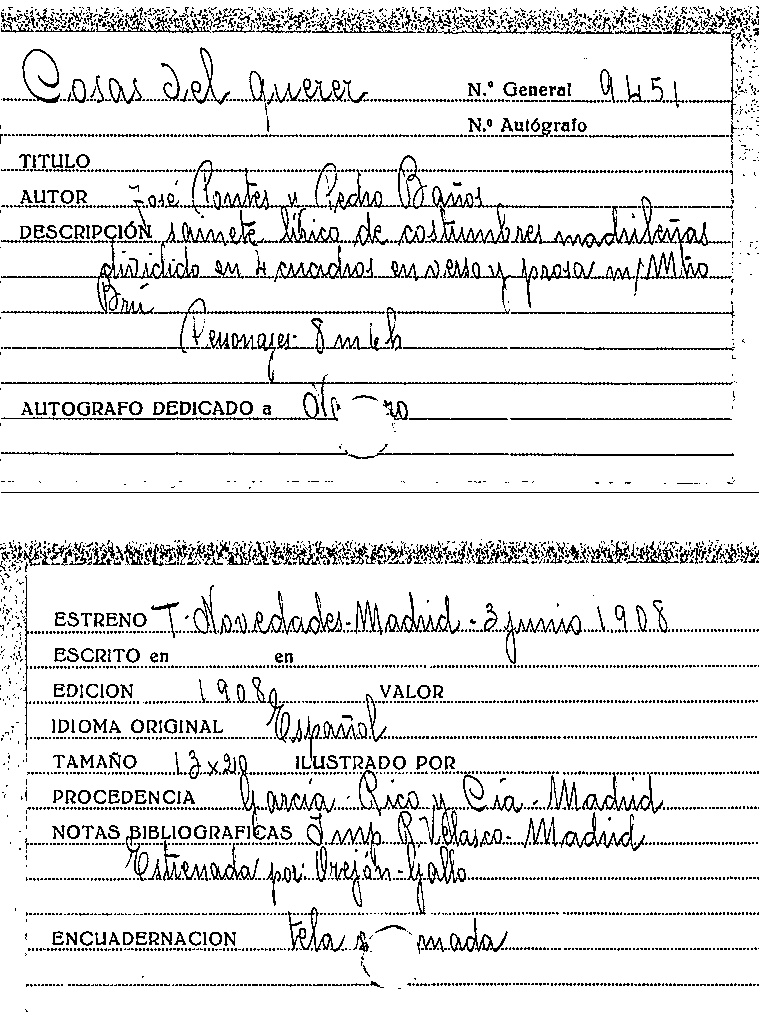 Cosas del querer N.º General 9451
N.º Autógrafo
TITULO
AUTOR José Pontes y Pedro Baños
DESCRIPCIÓN sainete lírico de costumbres madrileñas
dividido en 4 cuadros en verso y prosa m/Mtro
Brú
Personajes- 8 m 6 h
AUTOGRAFO DEDICADO a
ESTRENO T. Novedades-Madrid-3 junio 1908
ESCRITO en en
EDICION 1908 VALOR
IDIOMA ORIGINAL Español
TAMAÑO 13x20 ILUSTRADO POR
PROCEDENCIA García-Rico y Cía-Madrid
NOTAS BIBLIOGRAFICAS Imp R. Velasco-Madrid
Estrenada por: Orejón-Gallo
ENCUADERNACION tela